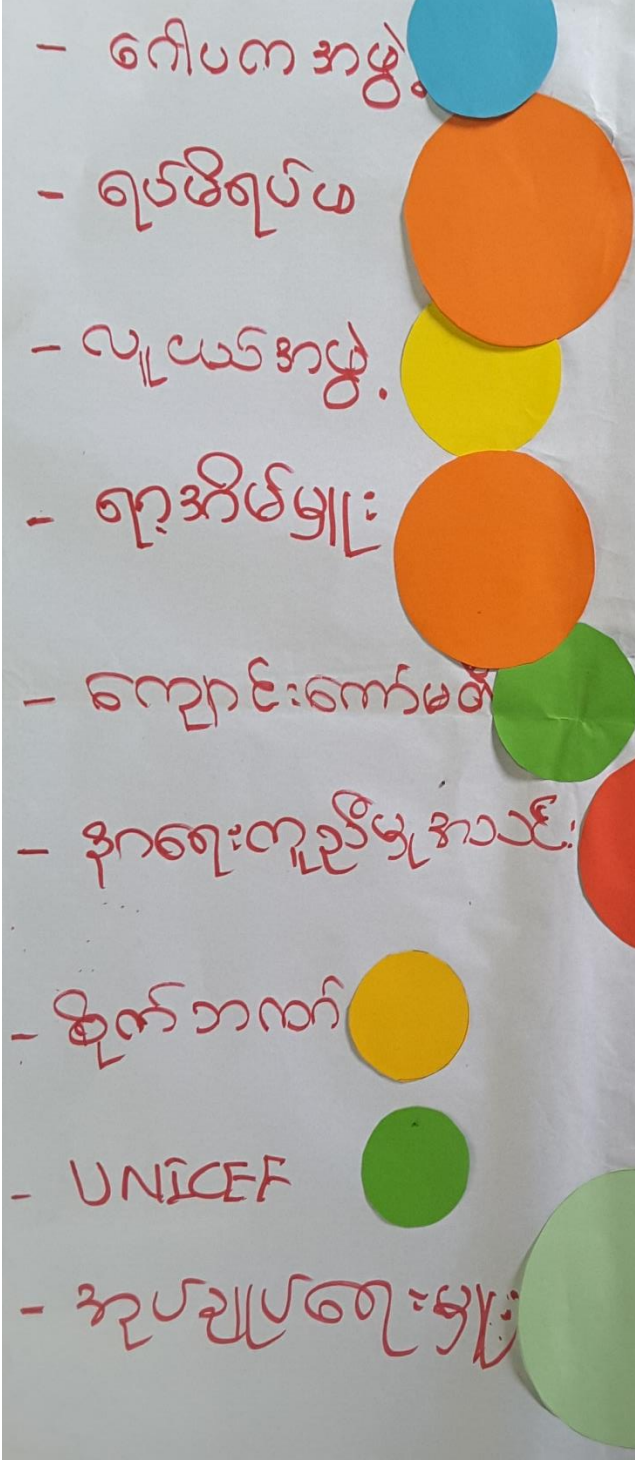 - ဂေါပကအဖွဲ့
- ရပ်မိရပ်ဖ
- လူငယ်အဖွဲ့
- ရာ့အိမ်မှူး
- ကျောင်းကော်မတီ
- နာရေးကူညီမှုအသင်း
- စိုက်ဘဏ်
- UNICEF
- အုပ်ချုပ်ရေးမှူး